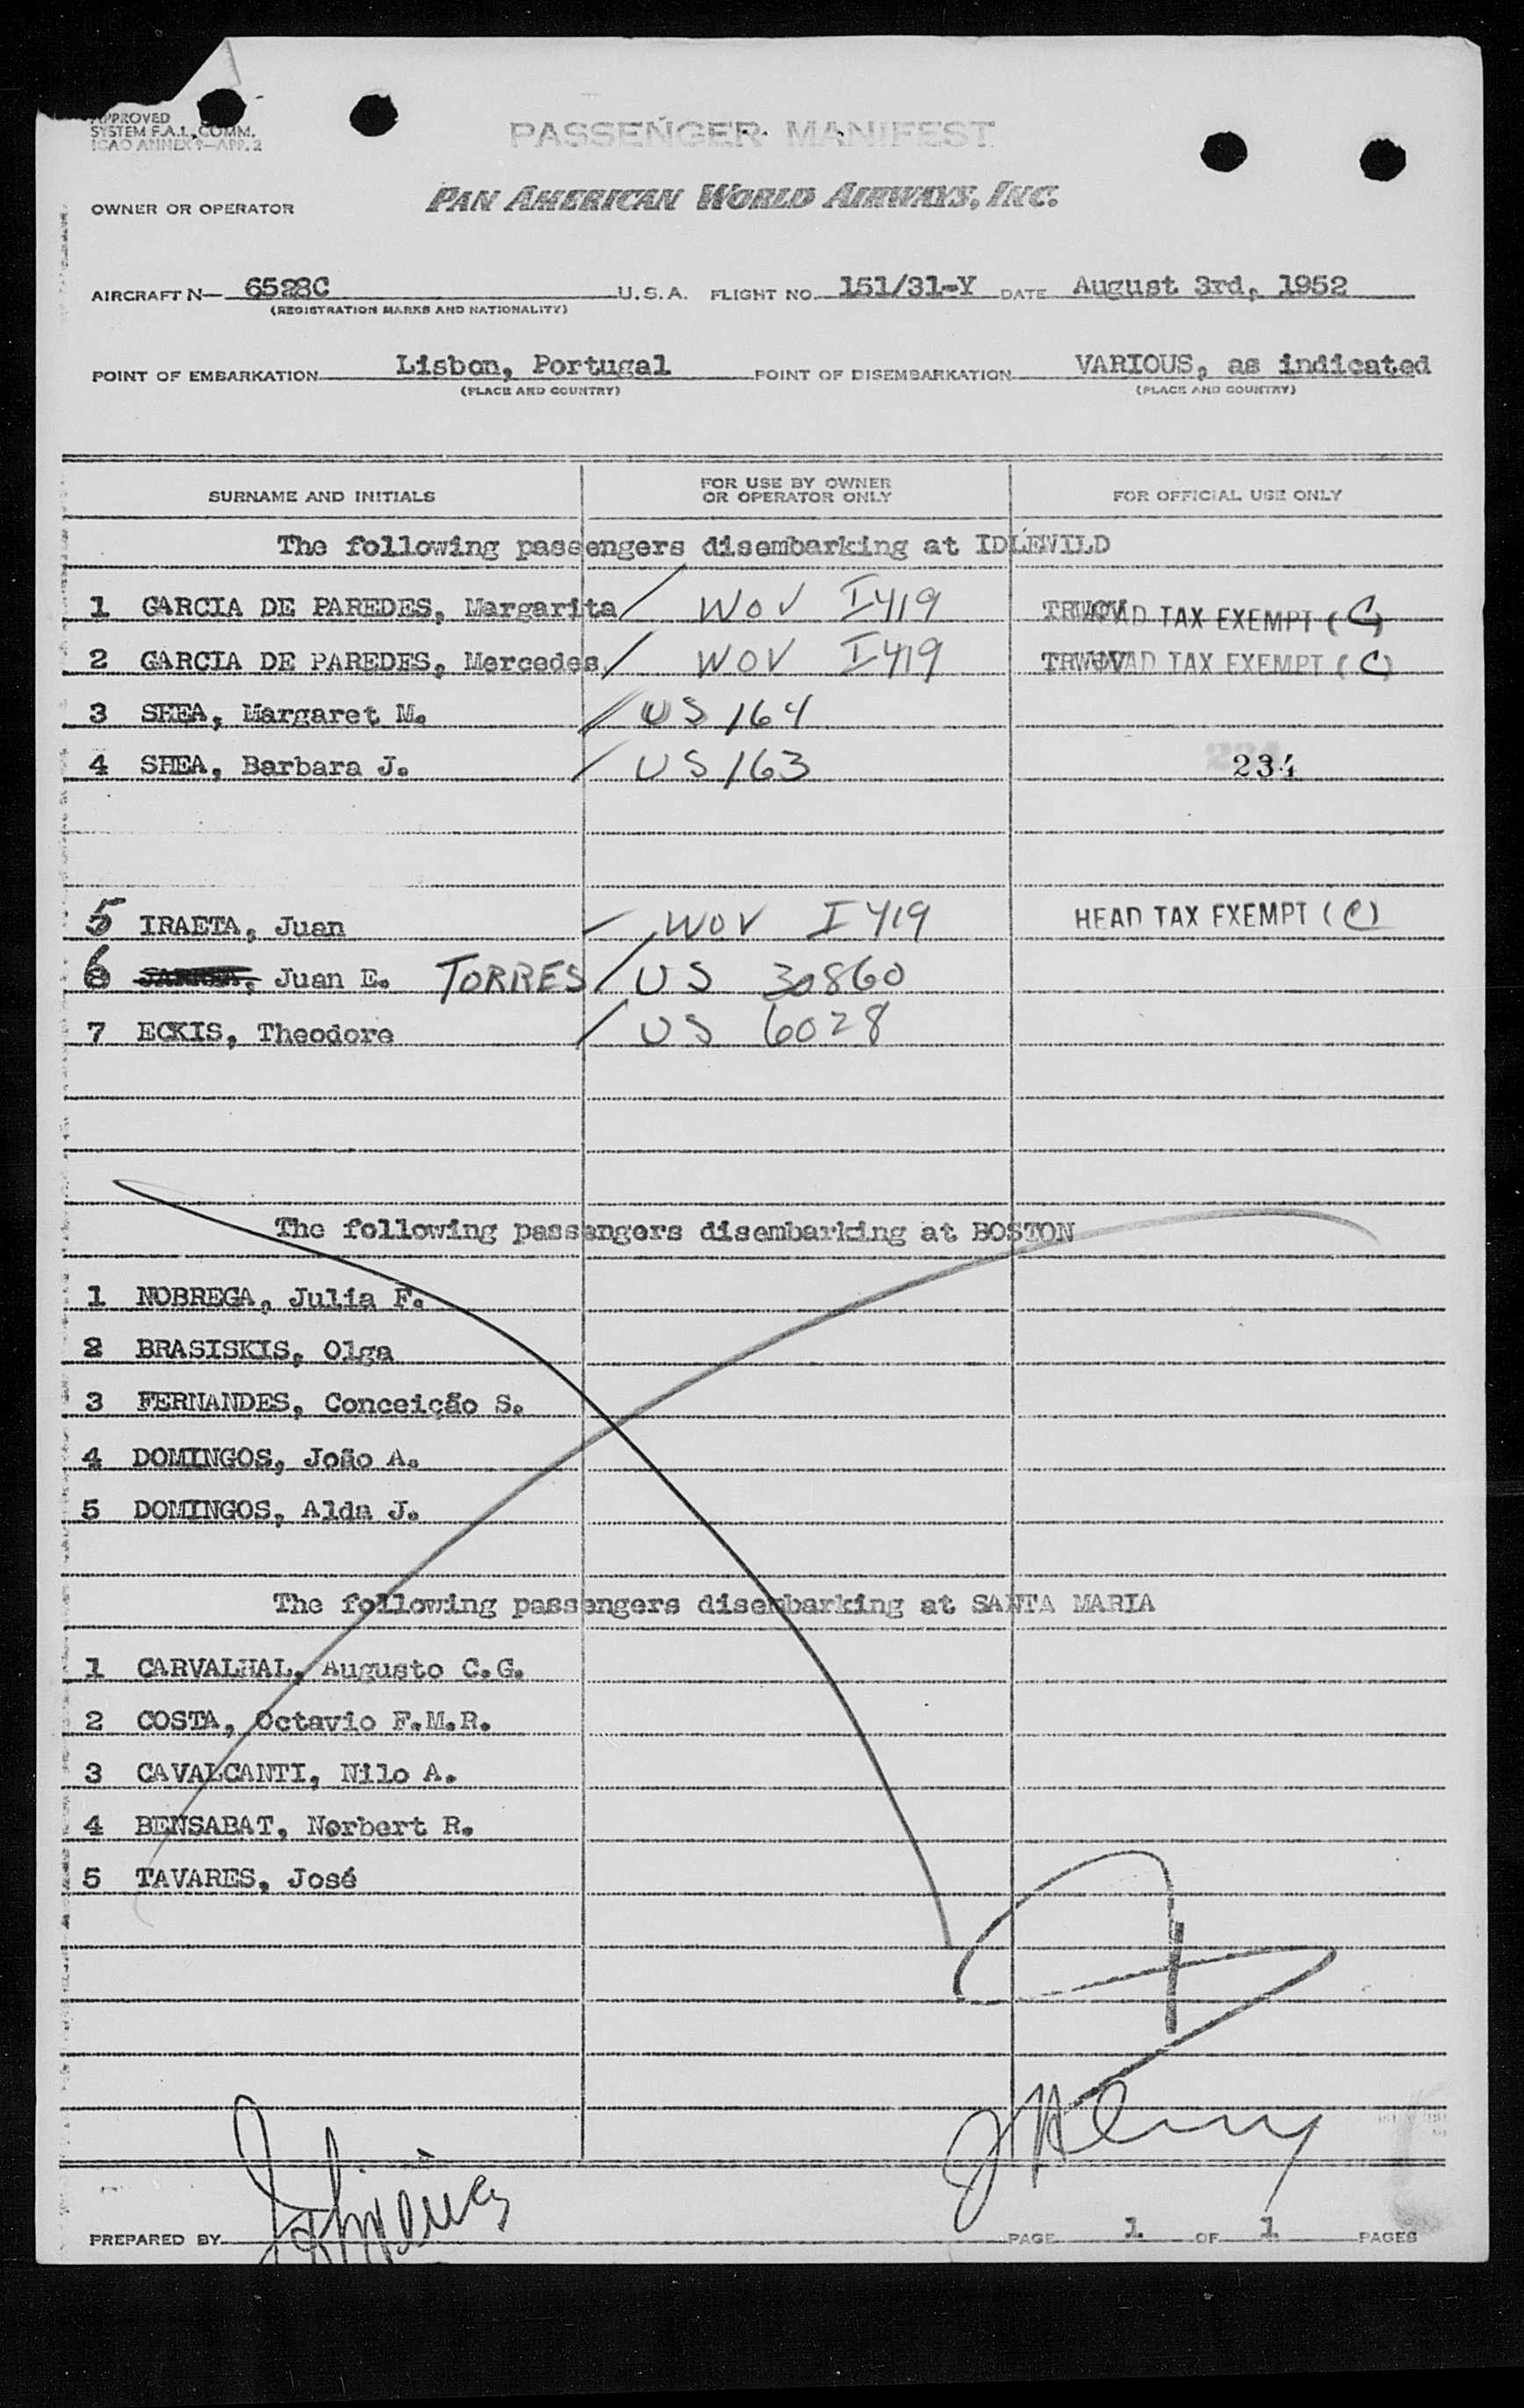 APPROVED
SYSTEM F.A.L. COMM.
ICAO ANNEX 9—APP. 2
PASSENGER MANIFEST
OWNER OR OPERATOR PAN AMERICAN WORLD AIRWAYS, INC.
AIRCRAFT N— 6528C U.S.A. FLIGHT NO. 151/31-Y DATE August 3rd, 1952
(REGISTRATION MARKS AND NATIONALITY)
POINT OF EMBARKATION Lisbon, Portugal POINT OF DISEMBARKATION VARIOUS, as indicated
(PLACE AND COUNTRY) (PLACE AND COUNTRY)
SURNAME AND INITIALS FOR USE BY OWNER OR OPERATOR ONLY FOR OFFICIAL USE ONLY
The following passengers disembarking at IDLEWILD
1 GARCIA DE PAREDES, Margarita / WOV I419 TRWOV HEAD TAX EXEMPT (C)
2 GARCIA DE PAREDES, Mercedes / WOV I419 TRWOV HEAD TAX EXEMPT (C)
3 SHEA, Margaret M. / US 164
4 SHEA, Barbara J. / US 163 234
5 IRAETA, Juan / WOV I419 HEAD TAX EXEMPT (C)
6 Juan E. TORRES / US 30860
7 ECKIS, Theodore / US 6028
The following passengers disembarking at BOSTON
1 NOBREGA, Julia F.
2 BRASISKIS, Olga
3 FERNANDES, Conceição S.
4 DOMINGOS, João A.
5 DOMINGOS, Alda J.
The following passengers disembarking at SANTA MARIA
1 CARVALHAL, Augusto C.G.
2 COSTA, Octavio F.M.R.
3 CAVALCANTI, Nilo A.
4 BENSABAT, Norbert R.
5 TAVARES, José
PREPARED BY PAGE 1 OF 1 PAGES